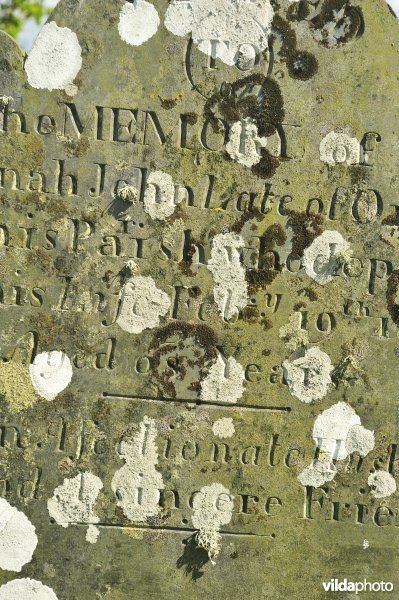 (To)
the MEMORY of
nah John Late of O
his Parish who dep
his Life Feb.y 19th 1
Aged 6 Years
n Affectionate
nd Sincere Frien
vildaphoto